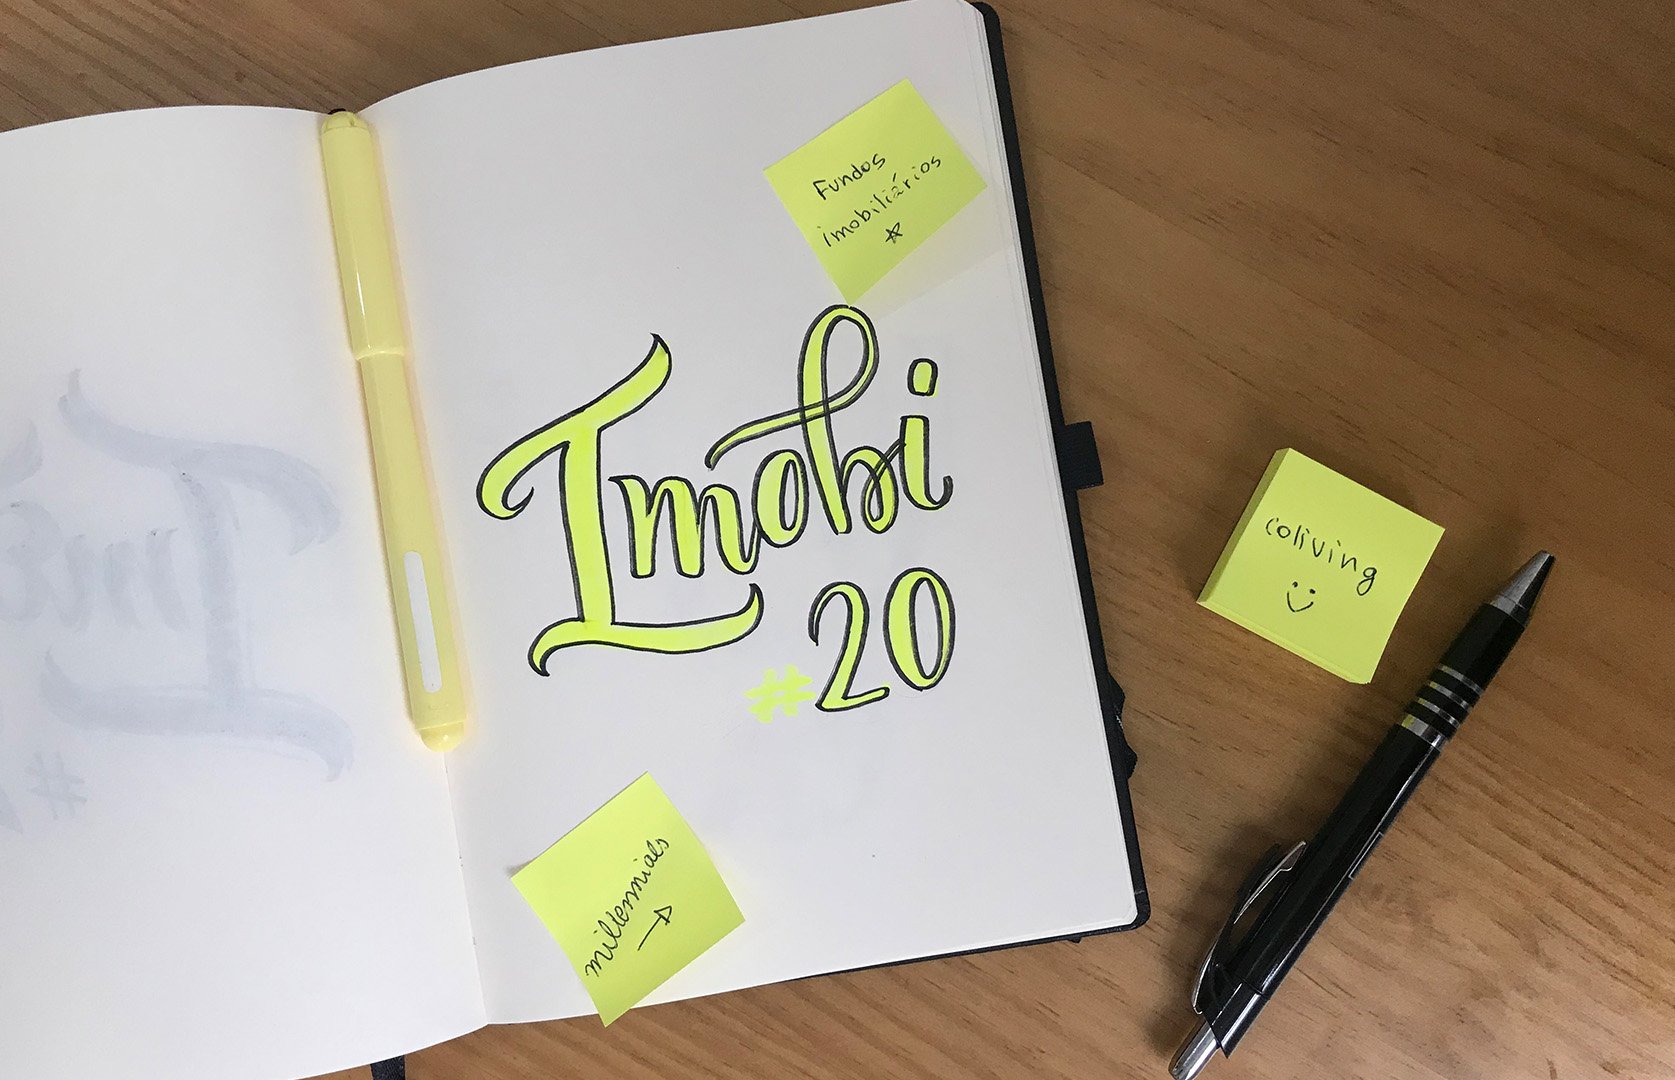 Fundos
imobiliários
Imobi
#20
coliving
millennials